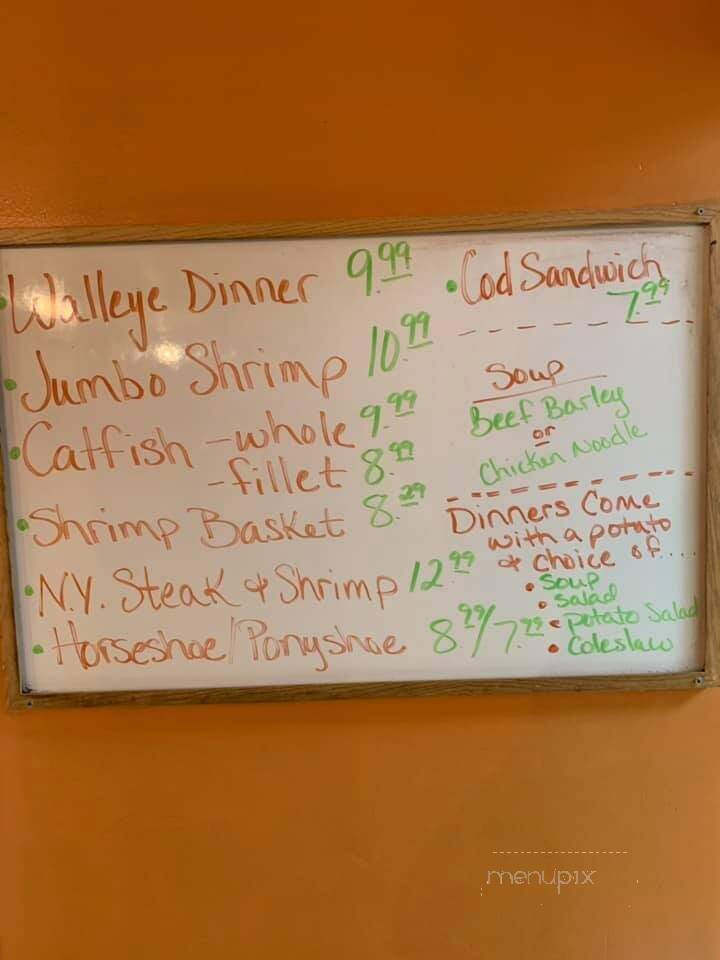 Walleye Dinner 9.99
Jumbo Shrimp 10.99
Catfish - whole 9.99
- fillet 8.99
Shrimp Basket 8.29
N.Y. Steak & Shrimp 12.99
Horseshoe/Ponyshoe 8.99/7.99
Cod Sandwich
7.99
Soup
Beef Barley
or
Chicken Noodle
Dinners Come
with a potato
& choice of....
• Soup
• Salad
• potato Salad
• Coleslaw
menupix